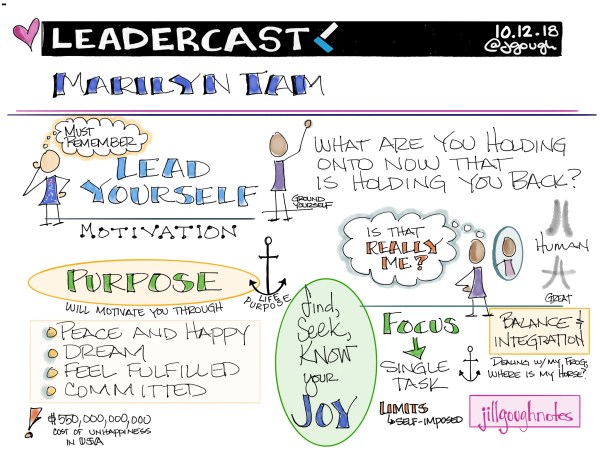 LEADERCAST
10.12.18
@jgough
MARILYN TAM
MUST
REMEMBER
LEAD
YOURSELF
MOTIVATION
GROUND
YOURSELF
WHAT ARE YOU HOLDING
ONTO NOW THAT
IS HOLDING YOU BACK?
IS THAT
REALLY
ME?
HUMAN
GREAT
PURPOSE
WILL MOTIVATE YOU THROUGH
PEACE AND HAPPY
DREAM
FEEL FULFILLED
COMMITTED
LIFE
PURPOSE
find,
Seek,
KNOW
your
JOY
FOCUS
SINGLE
TASK
LIMITS
SELF-IMPOSED
BALANCE &
INTEGRATION
DEALING W/ MY FROG,
WHERE IS MY HORSE?
! $550,000,000,000
COST OF UNHAPPINESS
IN
jillgoughnotes